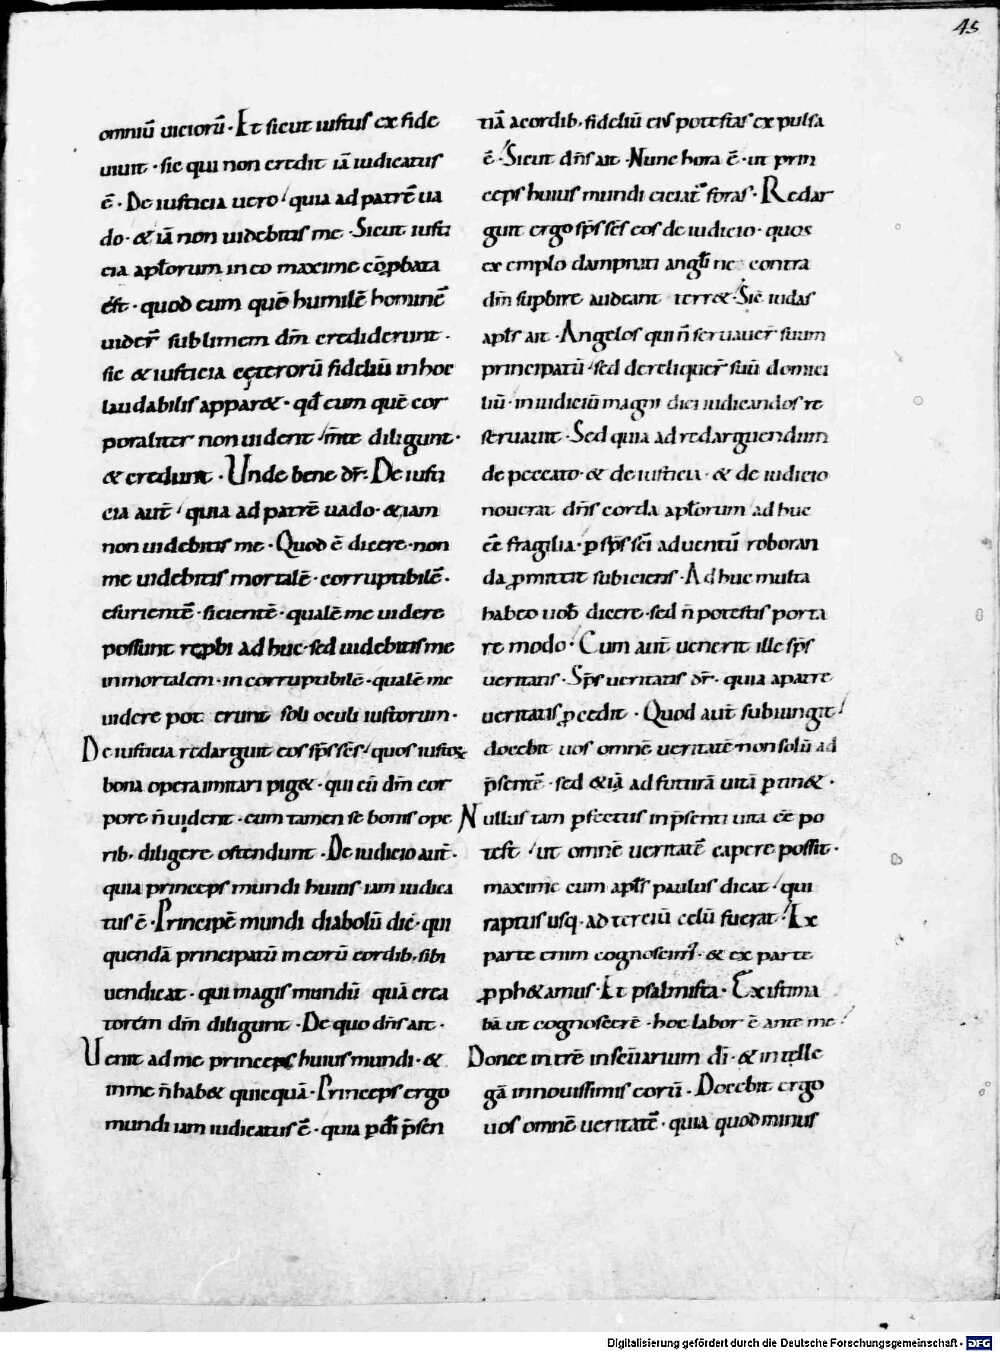 45
omniū uicioꝝ̄. Et sicut iustus ex fide
uiuit. sic qui non credit iā iudicatus
ē. De iusticia uero, quia ad patrē ua
do. & iā non uidebitis me. Sicut iusti
cia apl̄orum in eo maxime cōꝓbata
est. quod cum quē humilē hominē
uider̄ sublimem dm̄ crediderunt.
sic & iusticia ceterorū fideliū in hoc
laudabilis appar&. qd̄ cum quē cor
poraliter non uident, m̄te diligunt.
& credunt. Unde bene dr̄. De iusti
cia aut̄, quia ad patrē uado. & iam
non uidebitis me. Quod ē dicere. non
me uidebitis mortalē. corruptibilē.
esurientē. sicientē. qualē me uidere
possunt reꝓbi ad huc. sed uidebitis me
inmortalem. in corruptibilē. qualē me
uidere pot erunt soli oculi iustorum.
De iusticia redarguit eos sp̄s sc̄s, quos iustoꝝ
bona opera imitari pig&. qui cū dm̄ cor
pore n̄ uident. eum tamen se bonis ope
rib; diligere ostendunt. De iudicio aut̄.
quia princeps mundi huius iam iudica
tus ē. Principē mundi diabolū dic̄. qui
quendā principatū in eorū cordib; sibi
uendicat. qui magis mundū quā crea
torem dm̄ diligunt. De quo dn̄s ait.
Uenit ad me princeps huius mundi. &
in me n̄ hab& quicquā. Princeps ergo
mundi iam iudicatus ē. quia ꝑ dī p̄sen
tiā a cordib; fideliū eius potestas expulsa
ē. Sicut dn̄s ait. Nunc hora ē. ut prin
ceps huius mundi eiciat̄ foras. Redar
guit ergo sp̄s sc̄s eos de iudicio. quos
exemplo dampnati angl̄i ne contra
dm̄ supbire audeant terr&. Sic̄ iudas
apl̄s ait. Angelos qui n̄ seruauer̄ suum
principatū, sed dereliquer̄ suū domici
liū. in iudiciū magni diei iudicandos re
seruauit. Sed quia ad redarguendum
de peccato. & de iusticia. & de iudicio
nouerat dn̄s corda apl̄orum ad huc
ēē fragilia. ꝑ sp̄s sc̄i aduentū roboran
da ꝓmittit subiciens. Ad huc multa
habeo uob̄ dicere. sed n̄ potestis porta
re modo. Cum aut̄ uenerit ille sp̄s
ueritatis. Sp̄s ueritatis dr̄. quia a patre
ueritatis ꝓcedit. Quod aut̄ subiungit,
docebit uos omnē ueritatē non solū ad
p̄sentē. sed & iā ad futurā uitā ꝑtin&.
Nullus tam ꝑfectus in p̄senti uita ēē po
test, ut omnē ueritatē capere possit.
maxime cum apl̄s paulus dicat, qui
raptus usq; ad terciū celū fuerat, Ex
parte enim cognoscim̄. & ex parte
ꝓph&amus. Et psalmista. Existima
bā ut cognoscerē. hoc labor ē ante me,
Donec intrē in sc̄uarium dī. & intelle
gā in nouissimis eorū. Docebit ergo
uos omnē ueritatē. quia quod minus
Digitalisierung gefördert durch die Deutsche Forschungsgemeinschaft - DFG